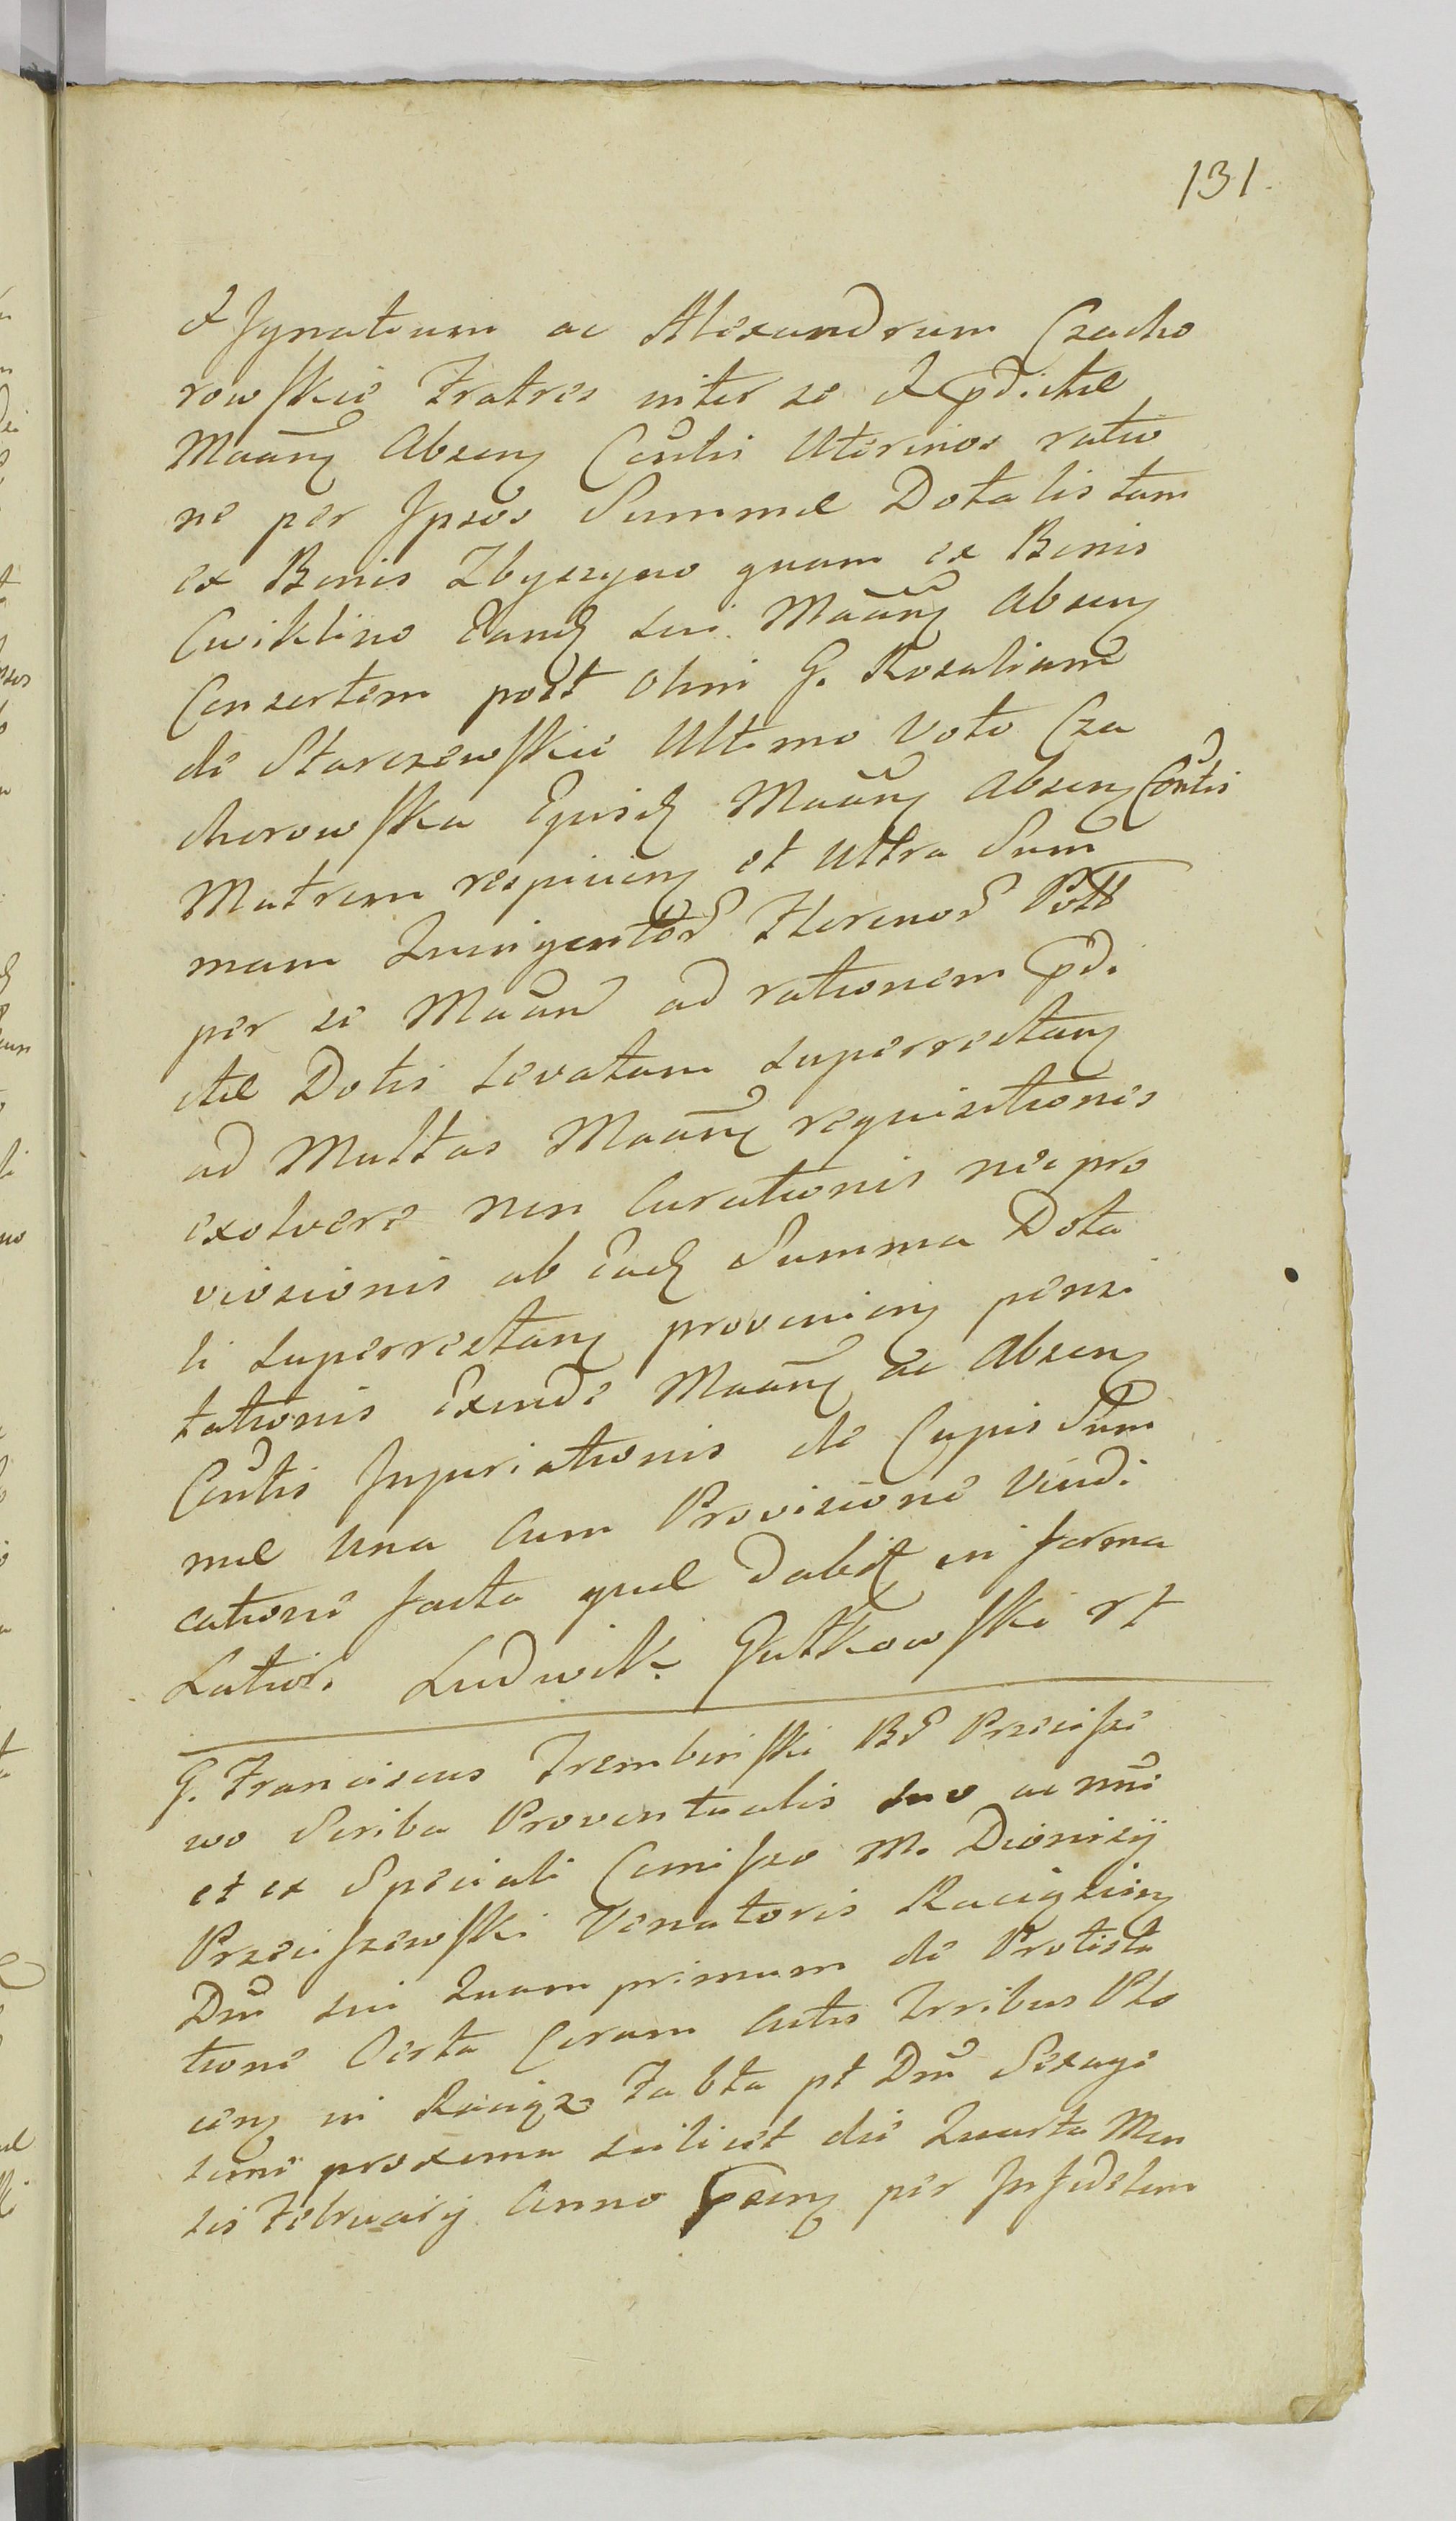 131.
& Ignatium ac Alexandrum Czacho
rowskie Fratres inter se & pdictæ
Maãn Absen Conthi Uterinos ratio
ne per Ipsos Summæ Dotalis tam
ex Bonis Zbyszyno quam ex Bonis
Cwiklino Eand sui Maãn Absen
Consortem post olim G. Rosaliam
de Starczewskie Ultimo Voto Cza
chorowska Ejusd Maãn Absen Conthis
Matrem respicien et Ultra Sum
mam Quingentor Florenor Poll
per se Maãn ad rationem pdi
ctæ Dotis levatam superrestan
ad Multas Maãn requisitiones
exolvere non Curationis nec pro
visionis ab Ead Summa Dota
li superrestan provenien pensi
tationis Exinde Maãn ac Absen
Conthis Injuriationis de Cujus Sum
mæ Una Cum Provisione Vindi
catione facta quæ Dabit in forma
Latior. Ludwik Gutkowski rt
G. Franciscus Trembinski Br Przecisze
wo Scriba Proventualis suo ac nnõi
et ex Speciali Comisso M. Dionisij
Przeciszewski Venatoris Raciązien
Dnõ sui Quam primum de Protesta
tione Certa Coram Actis Trribus Plo
cen in Raciąz Fa bta pt Dnõ Sexage
sime proxima scilicet die Quarta Men
sis Februarij Anno Psen per Infidelem